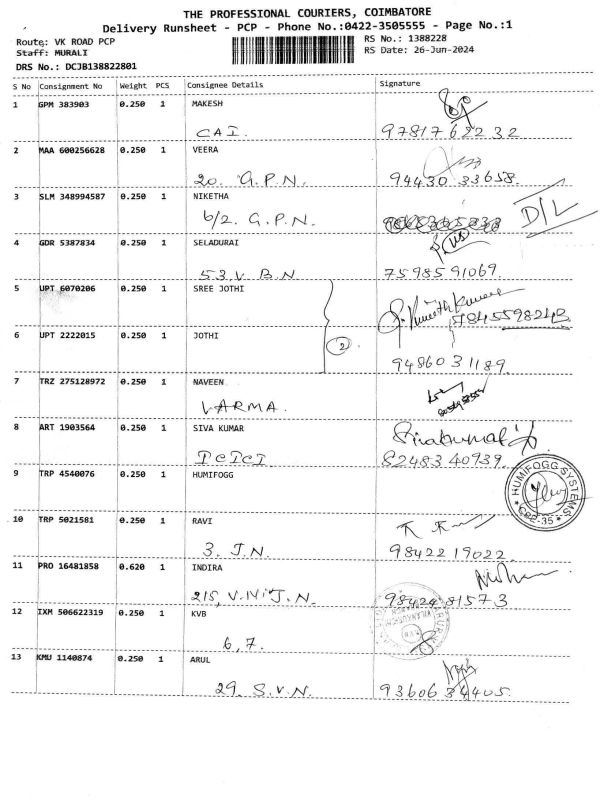 THE PROFESSIONAL COURIERS, COIMBATORE
Delivery Runsheet - PCP - Phone No.:0422-3505555 - Page No.:1
Route: VK ROAD PCP
RS No.: 1388228
Staff: MURALI
RS Date: 26-Jun-2024
DRS No.: DCJB138822801
S No Consignment No Weight PCS Consignee Details Signature
1 GPM 383903 0.250 1 MAKESH
CAI. 97817 62232
2 MAA 600256628 0.250 1 VEERA
20. G.P.N. 94430 33658
3 SLM 348994587 0.250 1 NIKETHA
6/2. G.P.N. D/L
4 GDR 5387834 0.250 1 SELADURAI
53. V. B.N 7598591069.
5 UPT 6070206 0.250 1 SREE JOTHI
7845598243
6 UPT 2222015 0.250 1 JOTHI
2
9486031189.
7 TRZ 275128972 0.250 1 NAVEEN
VARMA.
8 ART 1903564 0.250 1 SIVA KUMAR
Sivakumar
ICICI 82483 40939.
9 TRP 4540076 0.250 1 HUMIFOGG
HUMIFOGG SYSTEMS
CBE-35
10 TRP 5021581 0.250 1 RAVI
3. J.N. 98422 19022.
11 PRO 16481858 0.620 1 INDIRA
215, V.Ni J.N. 98424 81573
12 IXM 506622319 0.250 1 KVB
6,7.
13 KMU 1140874 0.250 1 ARUL
29. S.V.N. 93606 34405.